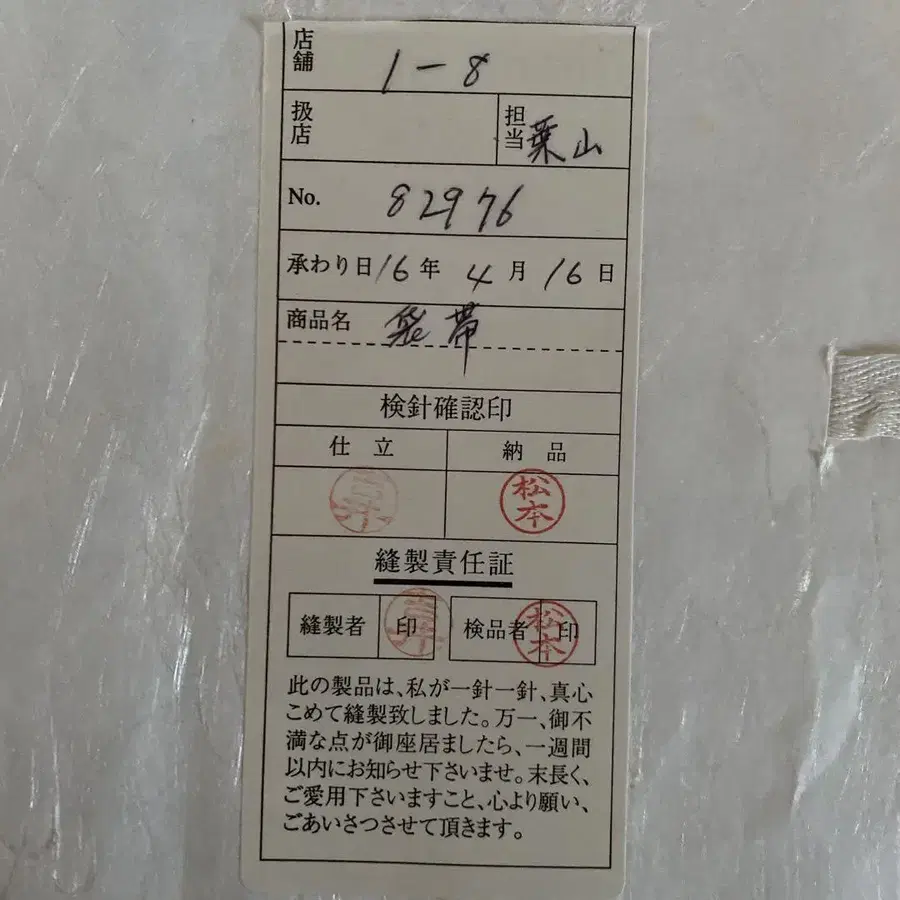 店舗 1-8
扱店 担当 葉山
No. 82976
承わり日 16年 4月 16日
商品名 袋帯
検針確認印
仕立 納品
松本
縫製責任証
縫製者 印 検品者 印 松本
此の製品は、私が一針一針、真心
こめて縫製致しました。万一、御不
満な点が御座居ましたら、一週間
以内にお知らせ下さいませ。末長く、
ご愛用下さいますこと、心より願い、
ごあいさつさせて頂きます。